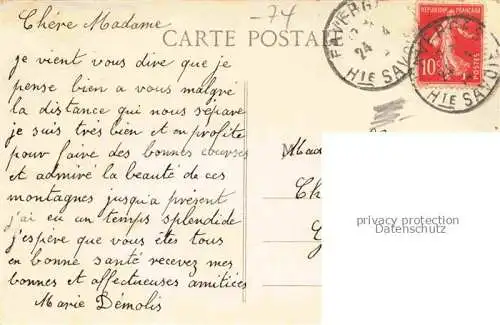 -74
Chère Madame
CARTE POSTALE
REPUBLIQUE FRANÇAISE
10c
Hte SAVOIE
Hte SAVOIE
je vient vous dire que je
pense bien a vous malgré
la distance qui nous sépare
je suis très bien et en profite
pour faire des bonnes courses
et admiré la beauté de ces
montagnes jusqu'a présent
j'ai eu un temps splendide
j'espère que vous êtes tous
en bonne santé recevez mes
bonnes et affectueuses amitiées
Marie Démolis
Mad
Ch
privacy protection
Datenschutz